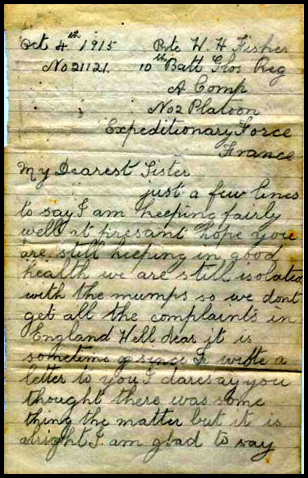 Oct 4th 1915 Pte W. H Fisher
No 21121. 10th Batt Glos Reg
A Comp
No 2 Platoon
Expeditionary Force
France
My Dearest Sister
just a few lines
to say I am keeping fairly
well at presant hope you
are still keeping in good
health we are still isolated
with the mumps so we dont
get all the complaints in
England Well dear it is
sometime go since I wrote a
letter to you I daresay you
thought there was some
thing the matter but it is
alright I am glad to say